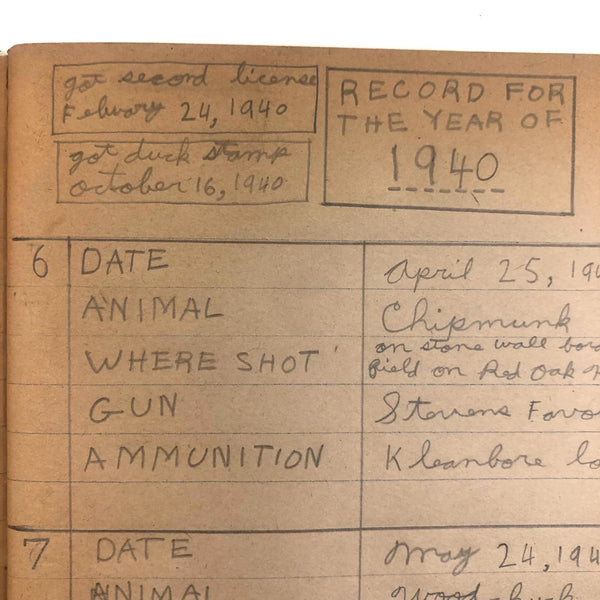 got second license
Febuary 24, 1940
got duck stamp
october 16, 1940
RECORD FOR
THE YEAR OF
1940
6 DATE April 25, 194
ANIMAL Chipmunk
WHERE SHOT on stone wall bord
field on Red Oak H
GUN Stevens Favo
AMMUNITION Kleanbore lo
7 DATE May 24, 194
ANIMAL Wood-chuck